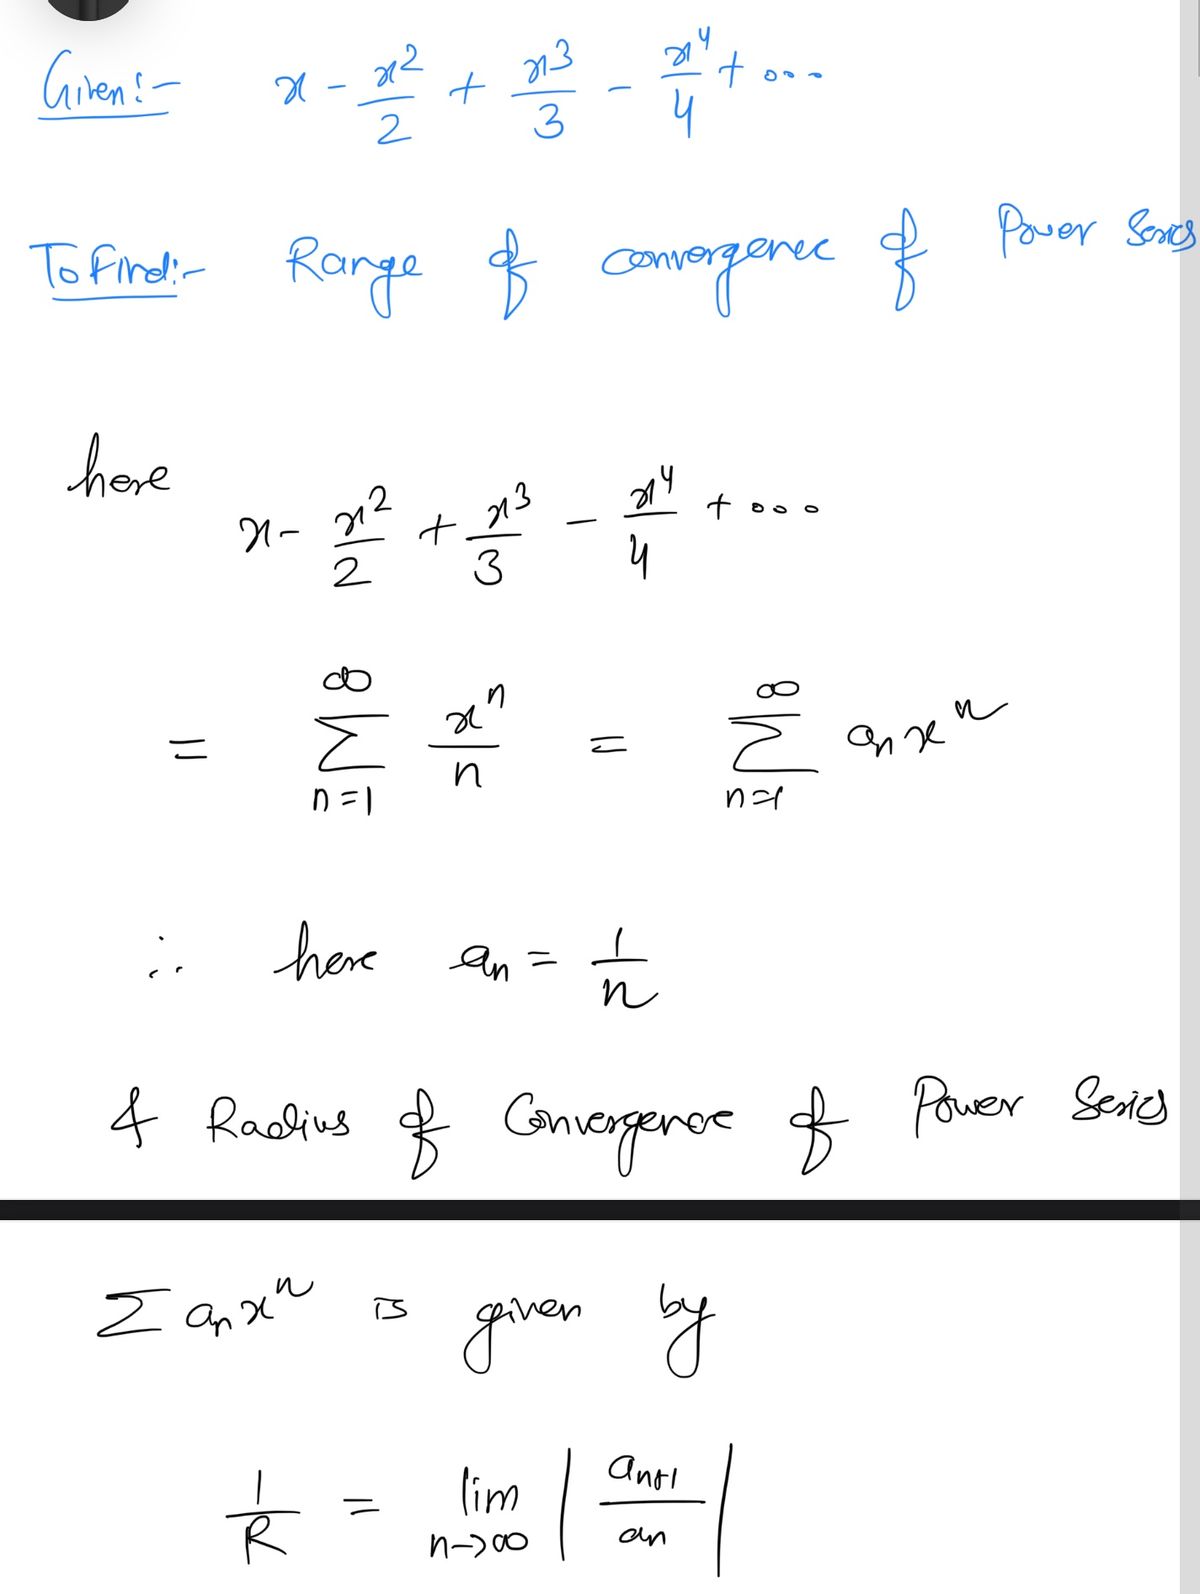 Given:- x - x²/2 + x³/3 - x⁴/4 + ...
To Find:- Range of convergence of Power Series
here
x - x²/2 + x³/3 - x⁴/4 + ...
= ∑_{n=1}^{∞} xⁿ/n = ∑_{n=1}^{∞} aₙxⁿ
∴ here aₙ = 1/n
& Radius of Convergence of Power Series
∑ aₙxⁿ is given by
1/R = lim_{n→∞} | aₙ₊₁/aₙ |